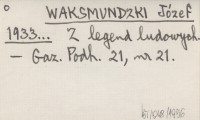 WAKSMUNDZKI Józef
1933... Z legend ludowych.
— Gaz. Podh. 21, nr 21.